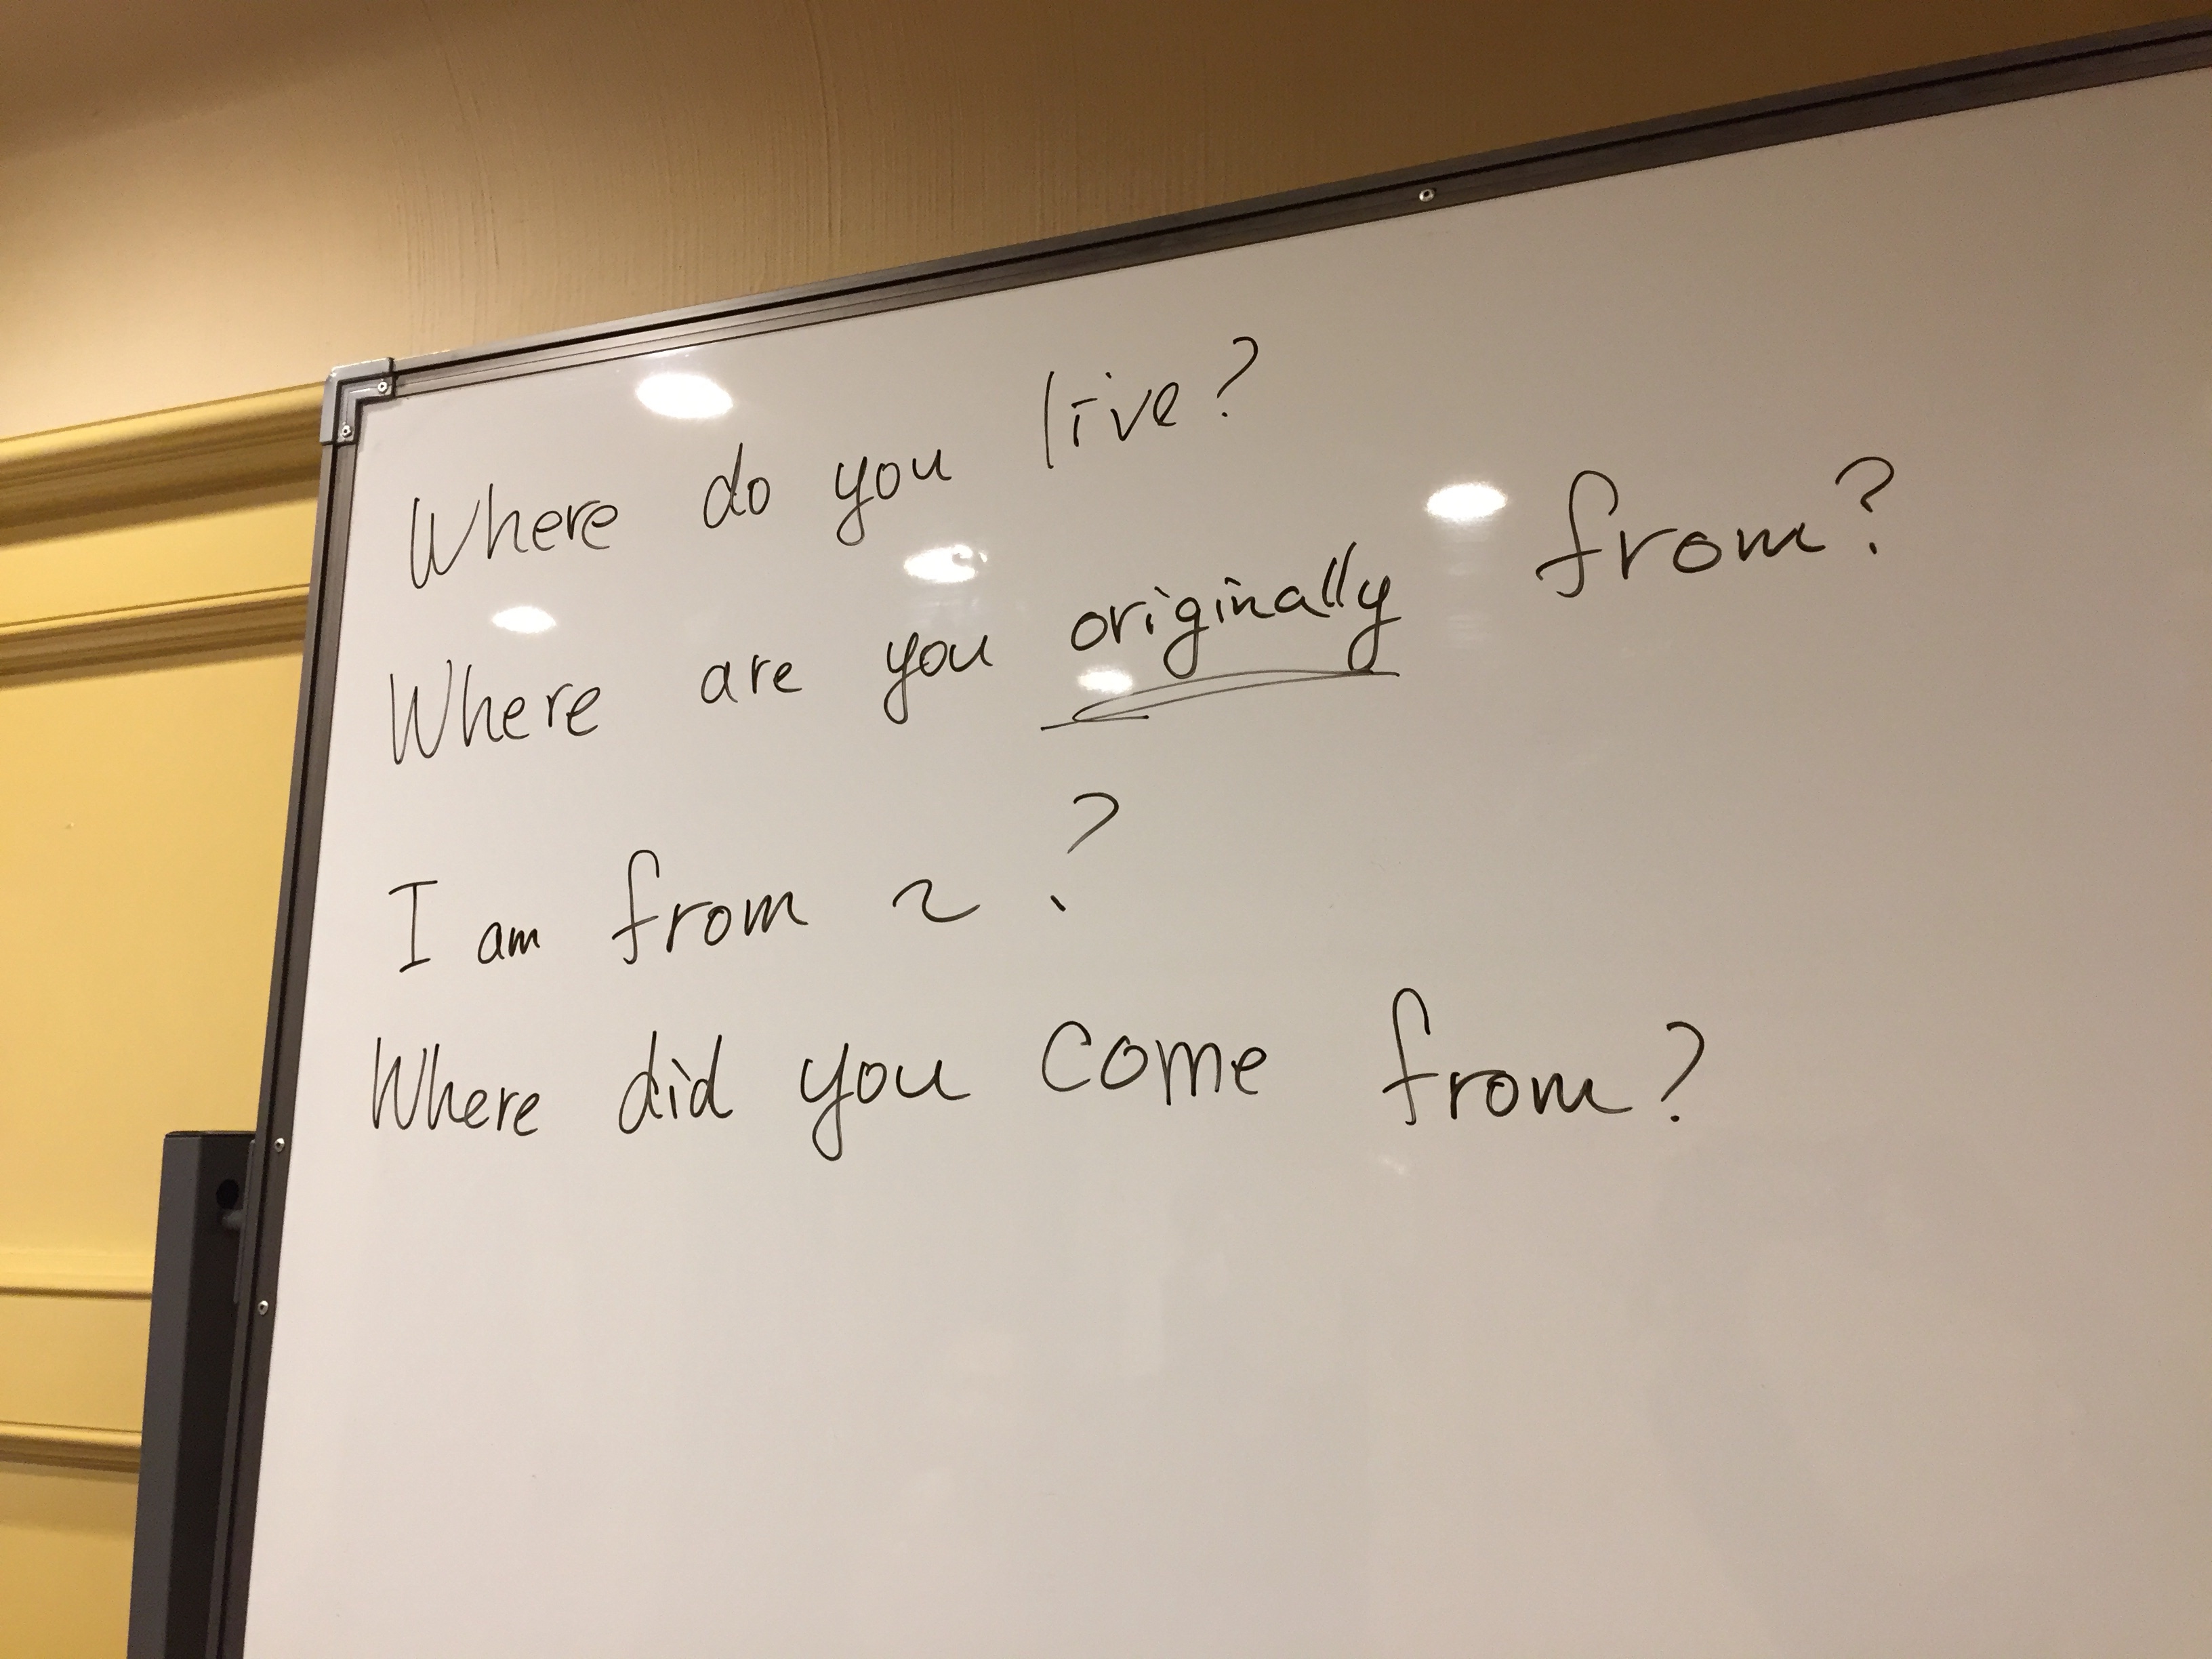 Where do you live?
Where are you originally from?
I am from ~ ?
Where did you come from?